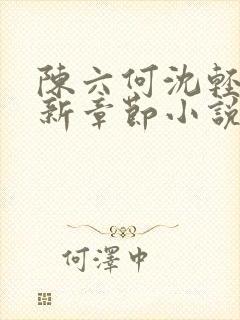 陳六何沈輕
新章節小說
何澤中